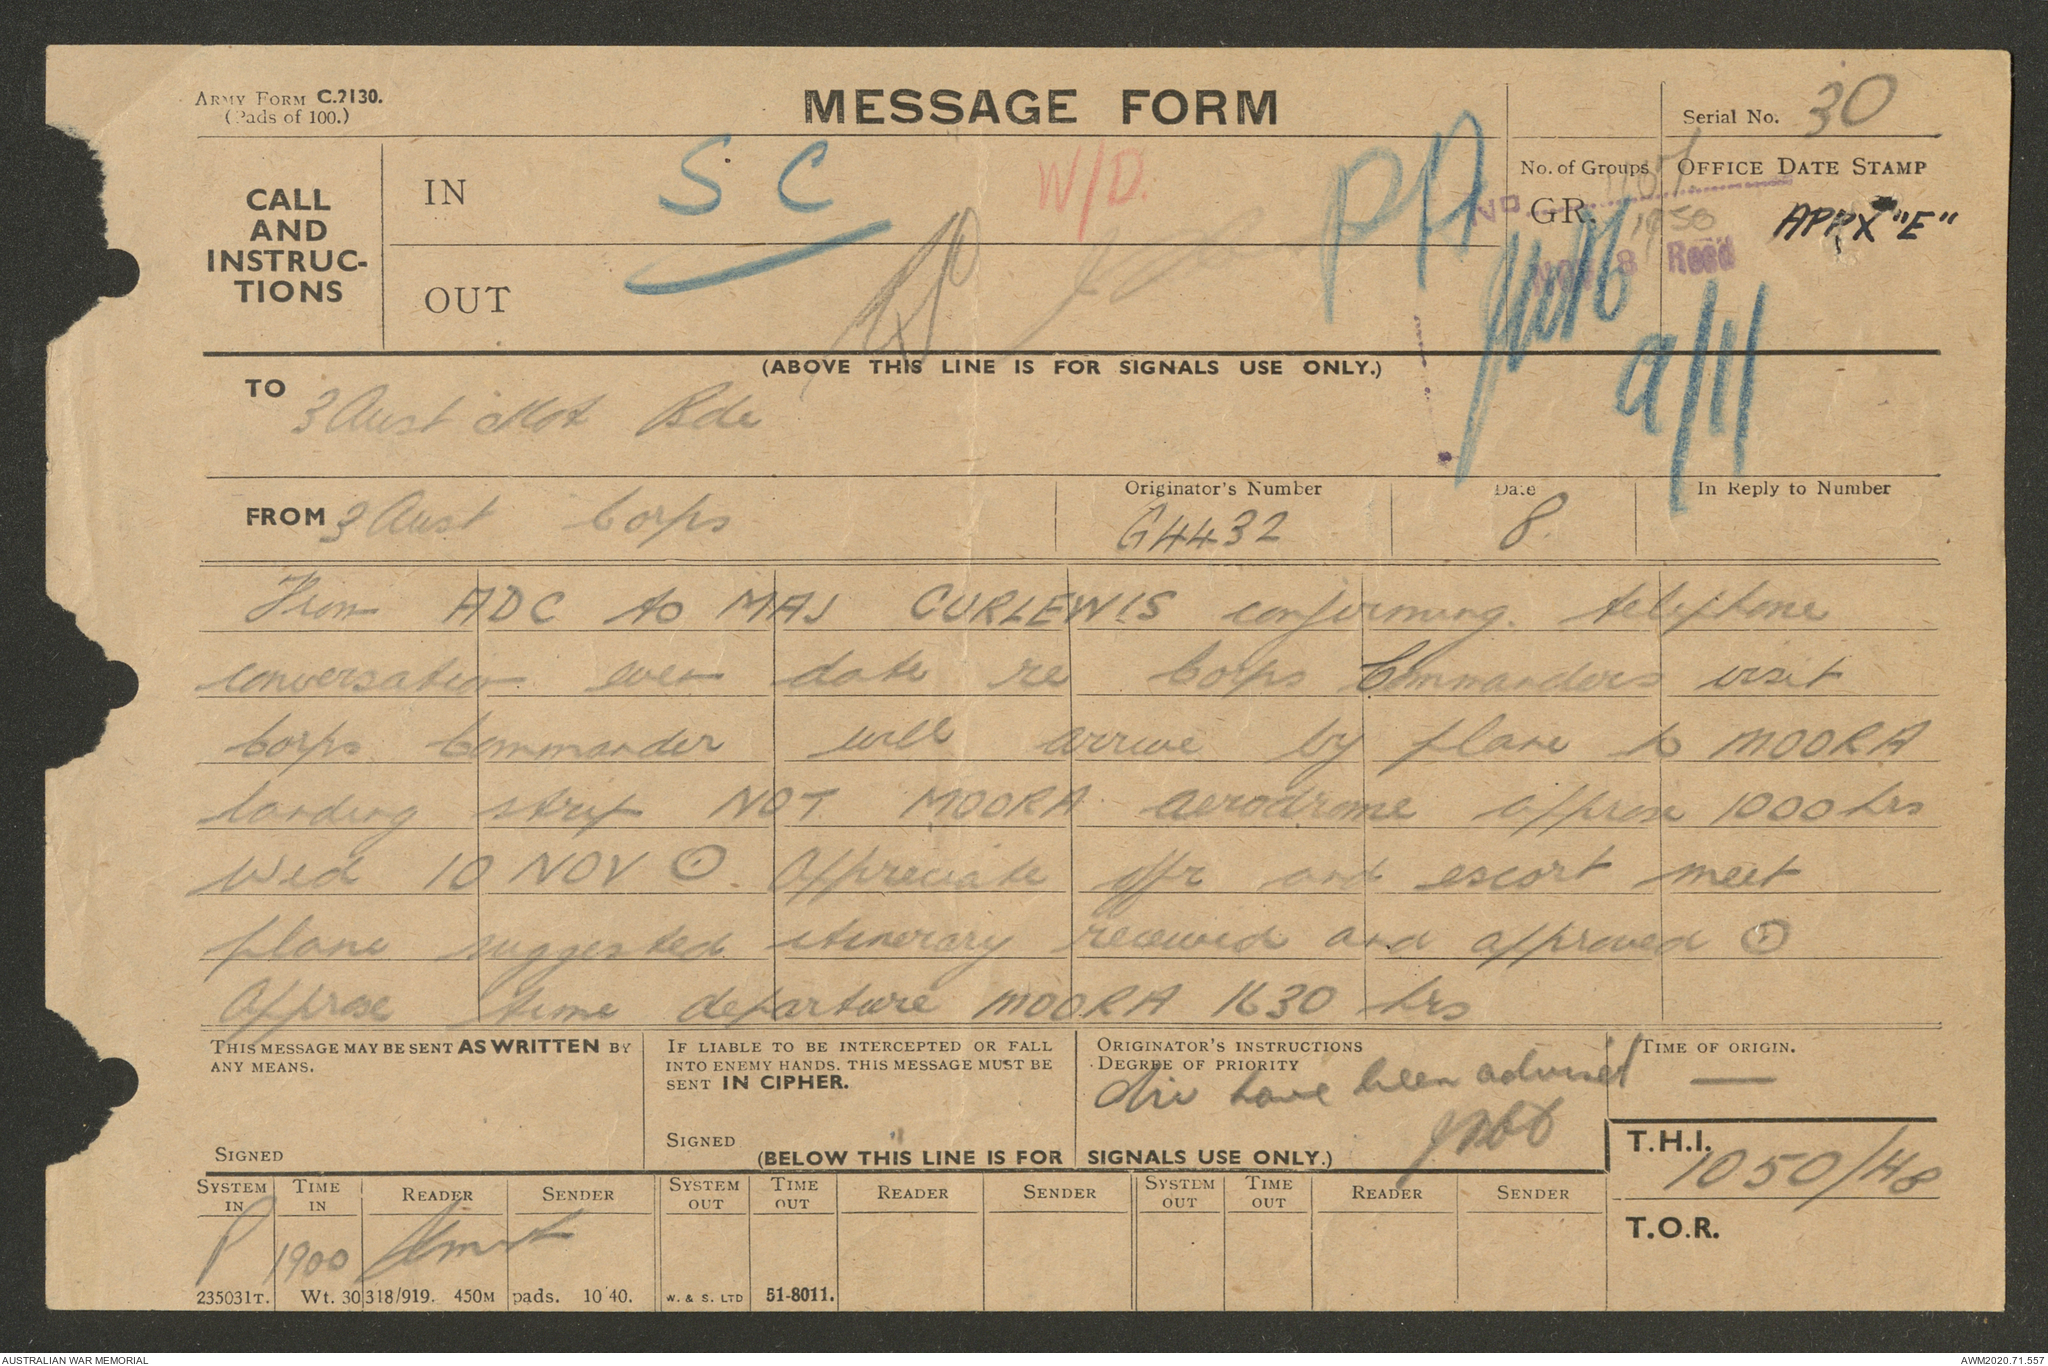 ARMY FORM C.2130.
(Pads of 100.)
MESSAGE FORM
Serial No. 30
CALL
AND
INSTRUC-
TIONS
IN
OUT
S C
W/D.
PA
No. of Groups
GR.
OFFICE DATE STAMP
No.
1950
NOV 8 Recd
APPX "E"
9/11
(ABOVE THIS LINE IS FOR SIGNALS USE ONLY.)
TO 3 Aust Mot Bde
FROM 3 Aust Corps
Originator's Number
G4432
Date
8.
In Reply to Number
From ADC to MAJ CURLEWIS confirming telephone
conversation even date re Corps Commanders visit
Corps Commander will arrive by plane to MOORA
landing strip NOT MOORA aerodrome approx 1000 hrs
Wed 10 NOV ⊙ Appreciate offr and escort meet
plane suggested itinerary received and approved ⊙
Approx time departure MOORA 1630 hrs
THIS MESSAGE MAY BE SENT AS WRITTEN BY
ANY MEANS.
SIGNED
IF LIABLE TO BE INTERCEPTED OR FALL
INTO ENEMY HANDS. THIS MESSAGE MUST BE
SENT IN CIPHER.
SIGNED
ORIGINATOR'S INSTRUCTIONS
DEGREE OF PRIORITY
Div have been advised
TIME OF ORIGIN.
—
(BELOW THIS LINE IS FOR SIGNALS USE ONLY.)
T.H.I.
1050/H8
T.O.R.
SYSTEM IN TIME IN READER SENDER SYSTEM OUT TIME OUT READER SENDER SYSTEM OUT TIME OUT READER SENDER
P 1900
235031T. Wt. 30318/919. 450M pads. 10 40. W. & S. LTD 51-8011.
AUSTRALIAN WAR MEMORIAL
AWM2020.71.557